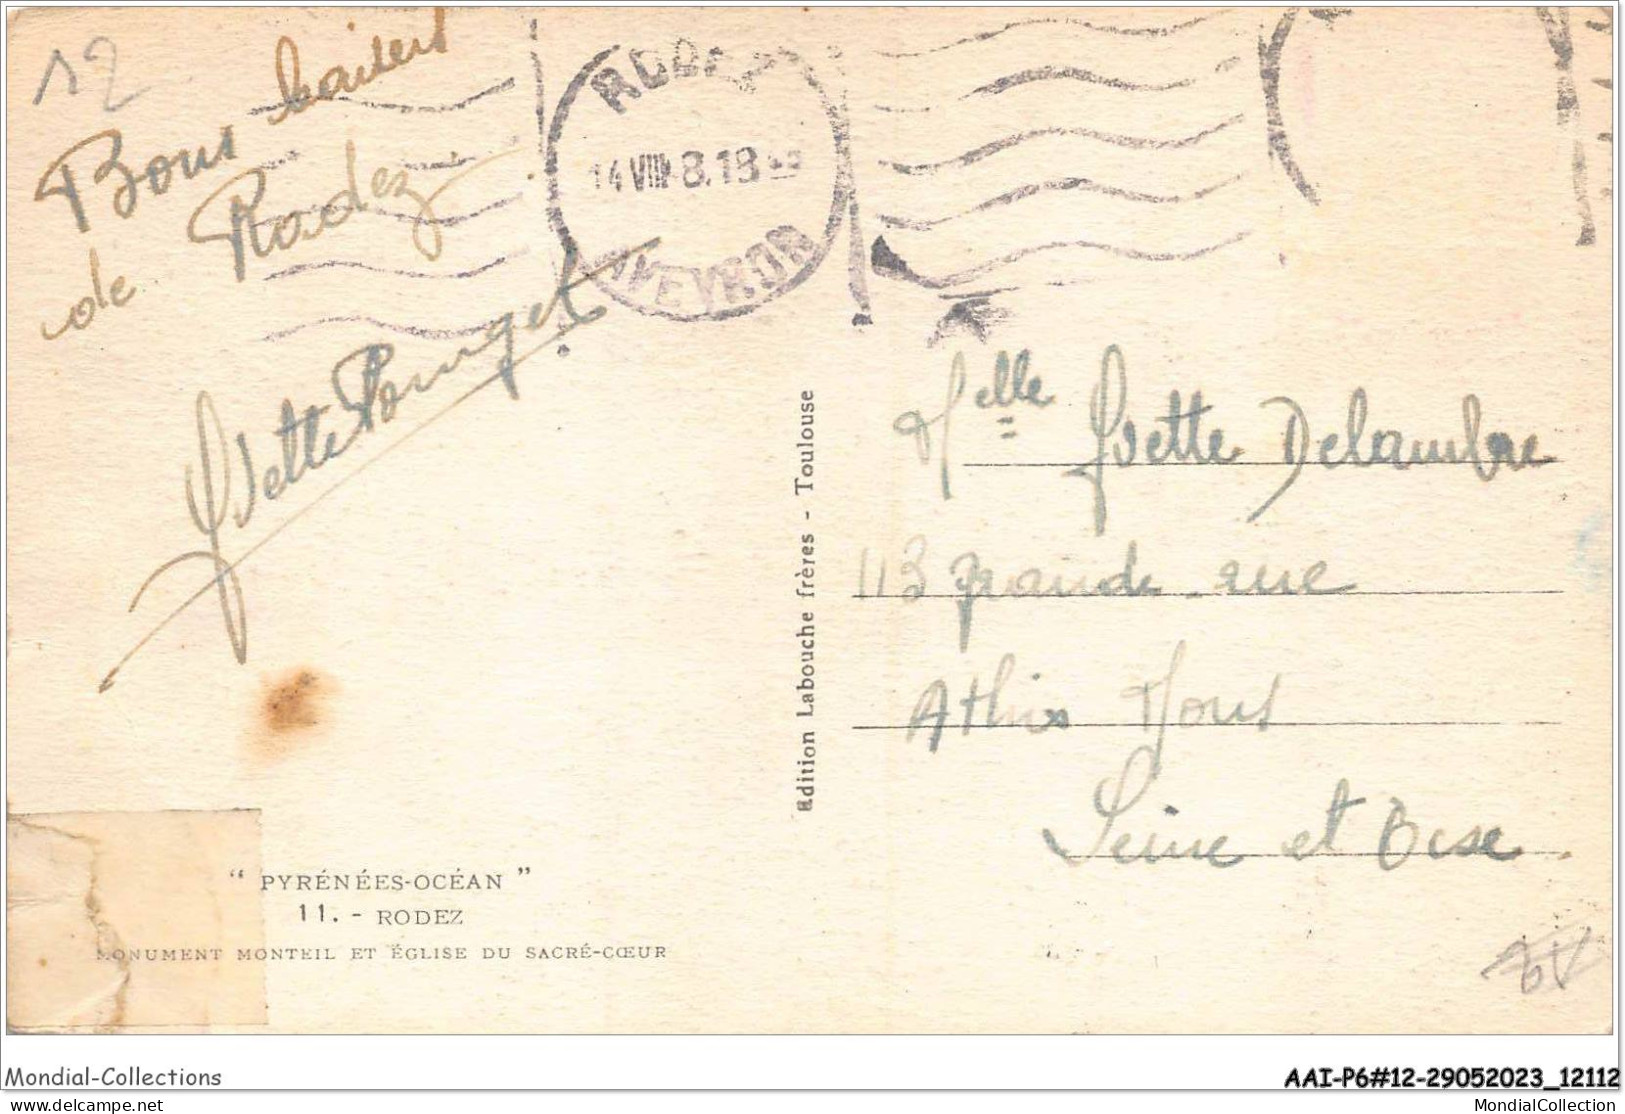 12
Bons baisers
de Rodez.
Yvette Pouget
RODEZ
14 VIII 8.18
AVEYRON
Edition Labouche frères - Toulouse
Melle Yvette Delambre
113 grande rue
Athis Mons
Seine et Oise
" PYRÉNÉES-OCÉAN "
11. - RODEZ
MONUMENT MONTEIL ET ÉGLISE DU SACRÉ-CŒUR
Mondial-Collections
AAI-P6#12-29052023_12112
www.mondial-collection.com
MondialCollection